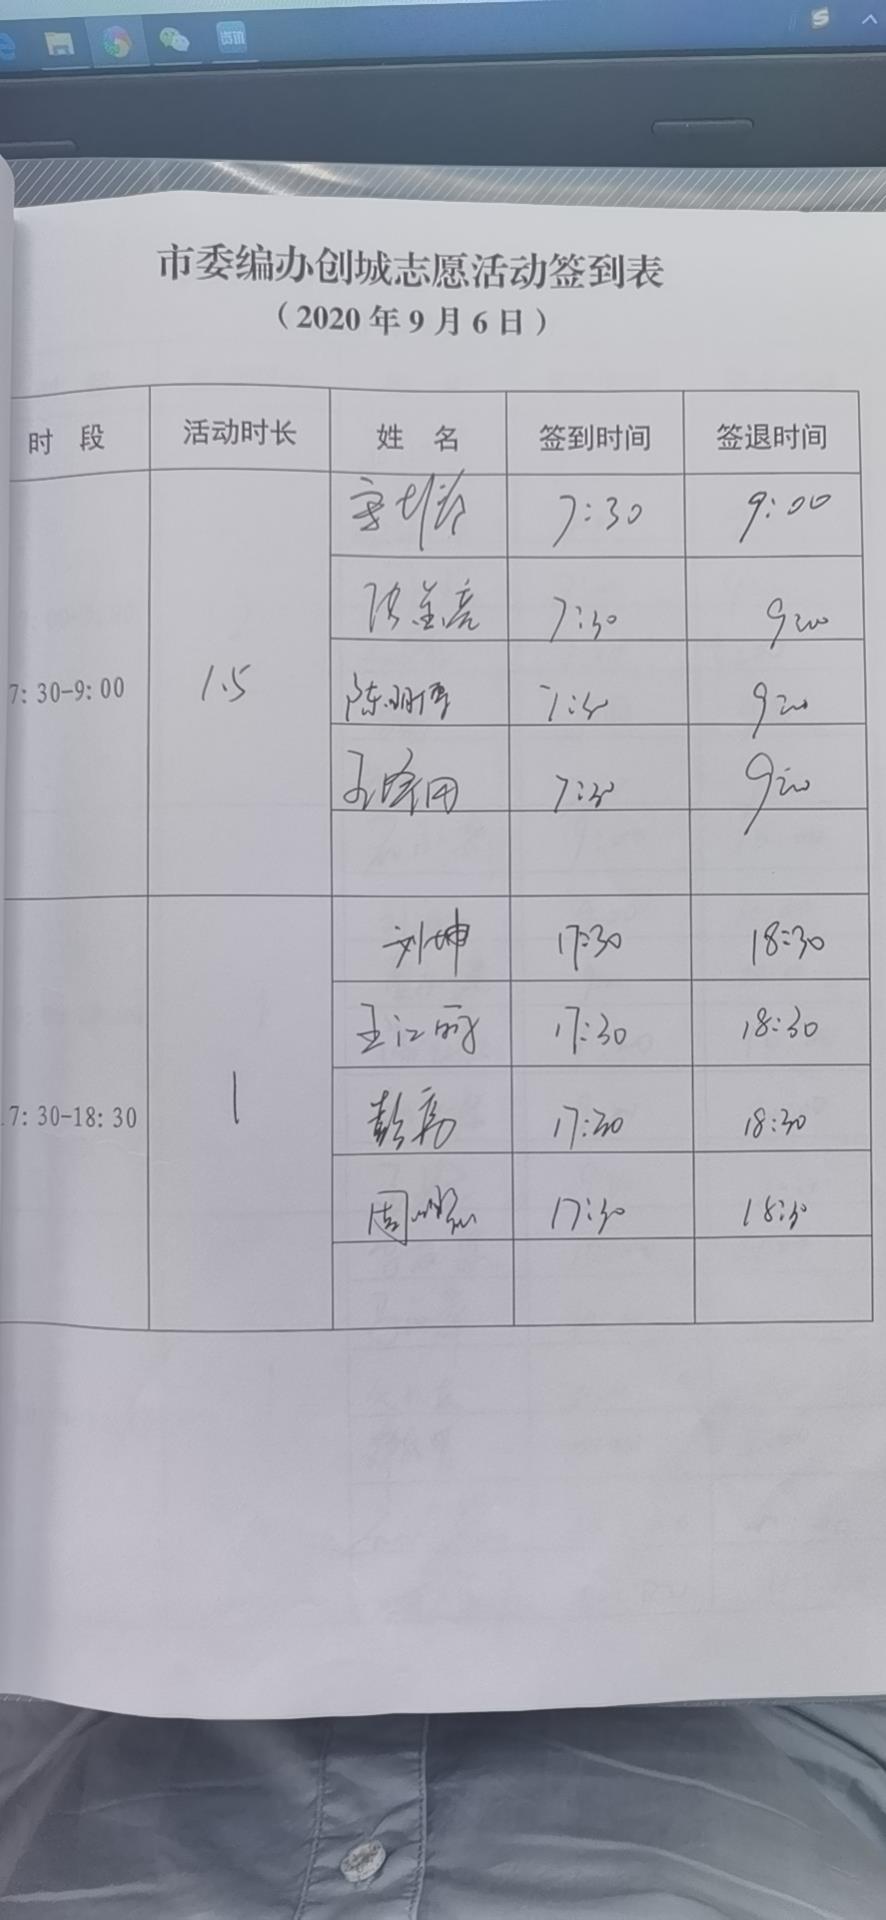 资讯
市委编办创城志愿活动签到表
（2020年9月6日）
时 段 活动时长 姓 名 签到时间 签退时间
7:30 9:00
7:30 9:00
7:30-9:00 1.5 7:30 9:00
7:30 9:00
刘坤 17:30 18:30
王江丽 17:30 18:30
7:30-18:30 1 彭亮 17:30 18:30
周 17:30 18:30